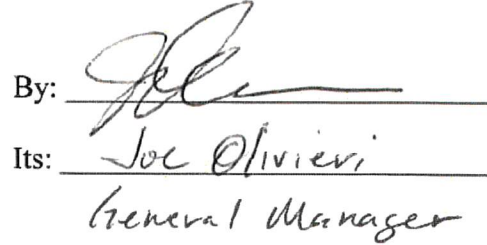 By:
Its: Joe Olivieri
General Manager